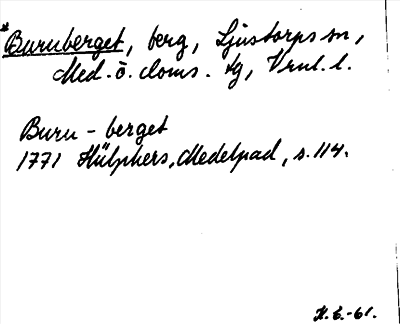 *Buruberget, berg, Ljustorps sn,
Med. ö. doms. tg, Vrnl. l.
Buru-berget
1771 Hülphers, Medelpad, s. 114.
K.E.-61.